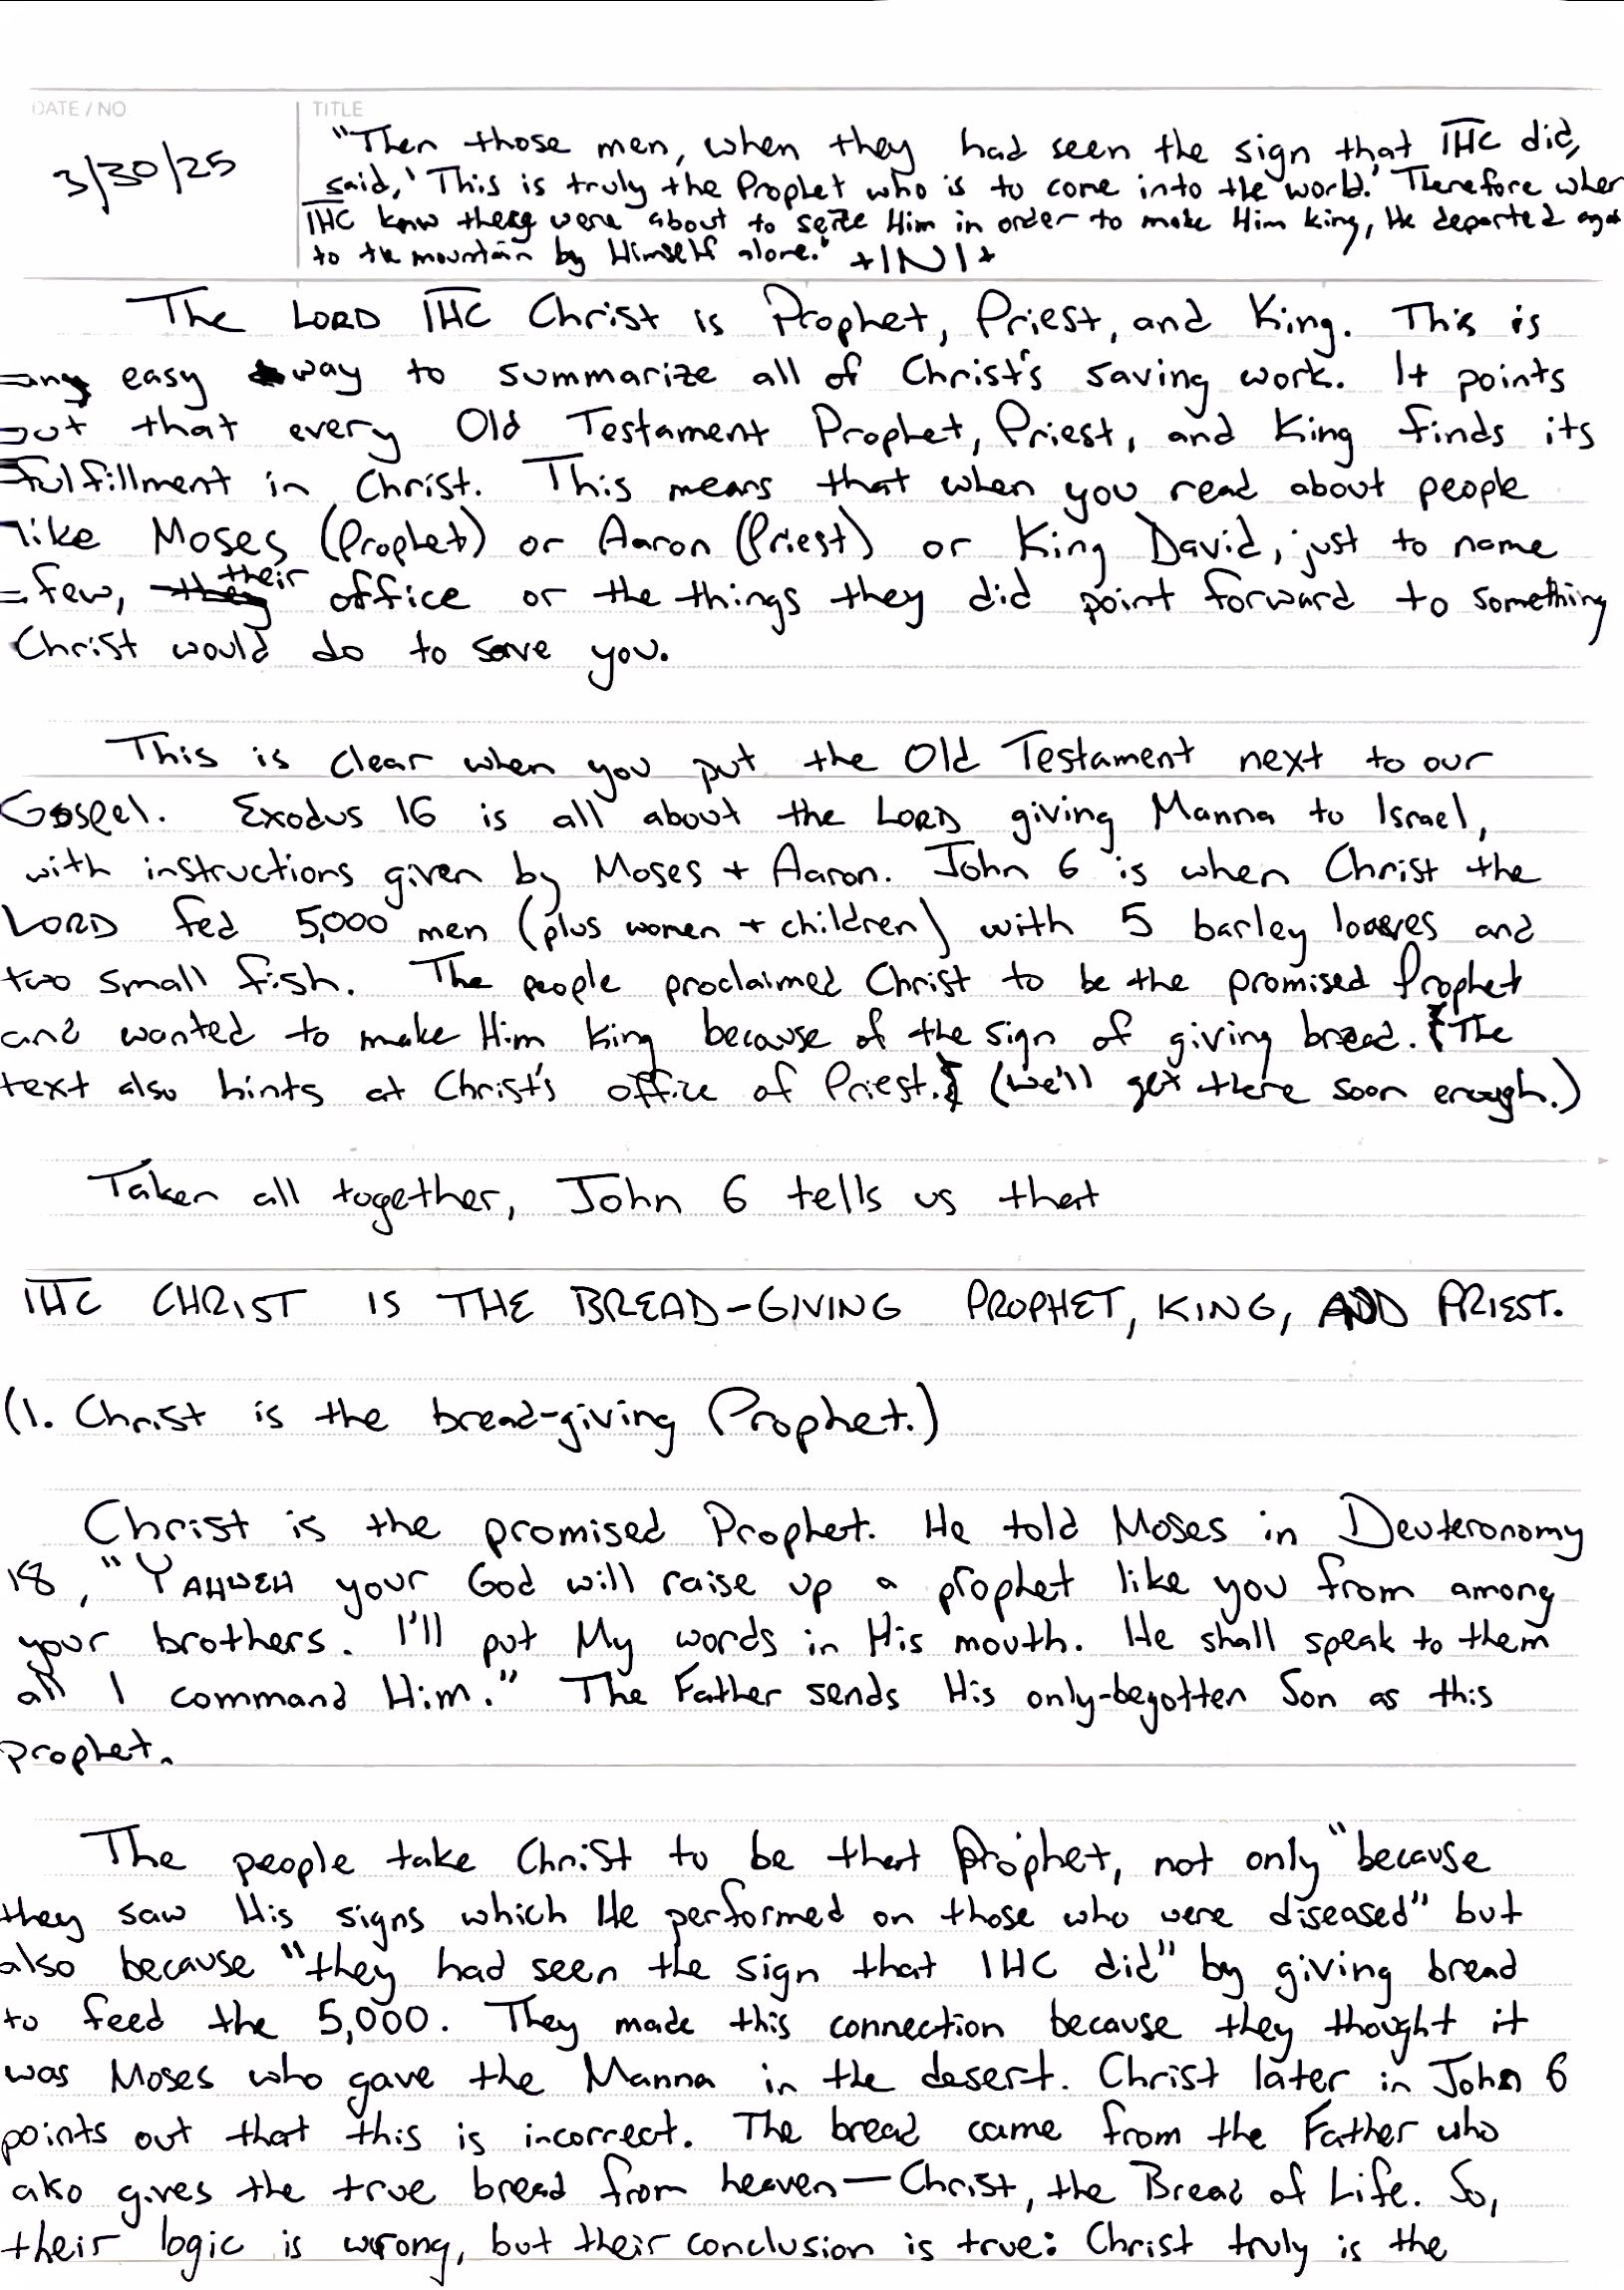 DATE / NO
TITLE
3/30/25
"Then those men, when they had seen the sign that IHC did,
said, 'This is truly the Prophet who is to come into the world.' Therefore when
IHC knew they were about to seize Him in order to make Him king, He departed again
to the mountain by Himself alone." +INI+
The LORD IHC Christ is Prophet, Priest, and King. This is
an easy way to summarize all of Christ's saving work. It points
out that every Old Testament Prophet, Priest, and King finds its
fulfillment in Christ. This means that when you read about people
like Moses (Prophet) or Aaron (Priest) or King David, just to name
few, their office or the things they did point forward to something
Christ would do to save you.
This is clear when you put the Old Testament next to our
Gospel. Exodus 16 is all about the LORD giving Manna to Israel,
with instructions given by Moses + Aaron. John 6 is when Christ the
LORD fed 5,000 men (plus women + children) with 5 barley loaves and
two small fish. The people proclaimed Christ to be the promised Prophet
and wanted to make Him King because of the sign of giving bread. The
text also hints at Christ's office of Priest. (We'll get there soon enough.)
Taken all together, John 6 tells us that
IHC CHRIST IS THE BREAD-GIVING PROPHET, KING, AND PRIEST.
(1. Christ is the bread-giving Prophet.)
Christ is the promised Prophet. He told Moses in Deuteronomy
18, "YAHWEH your God will raise up a prophet like you from among
your brothers. I'll put My words in His mouth. He shall speak to them
all I command Him." The Father sends His only-begotten Son as this
prophet.
The people take Christ to be that Prophet, not only "because
they saw His signs which He performed on those who were diseased" but
also because "they had seen the sign that IHC did" by giving bread
to feed the 5,000. They made this connection because they thought it
was Moses who gave the Manna in the desert. Christ later in John 6
points out that this is incorrect. The bread came from the Father who
also gives the true bread from heaven—Christ, the Bread of Life. So,
their logic is wrong, but their conclusion is true: Christ truly is the